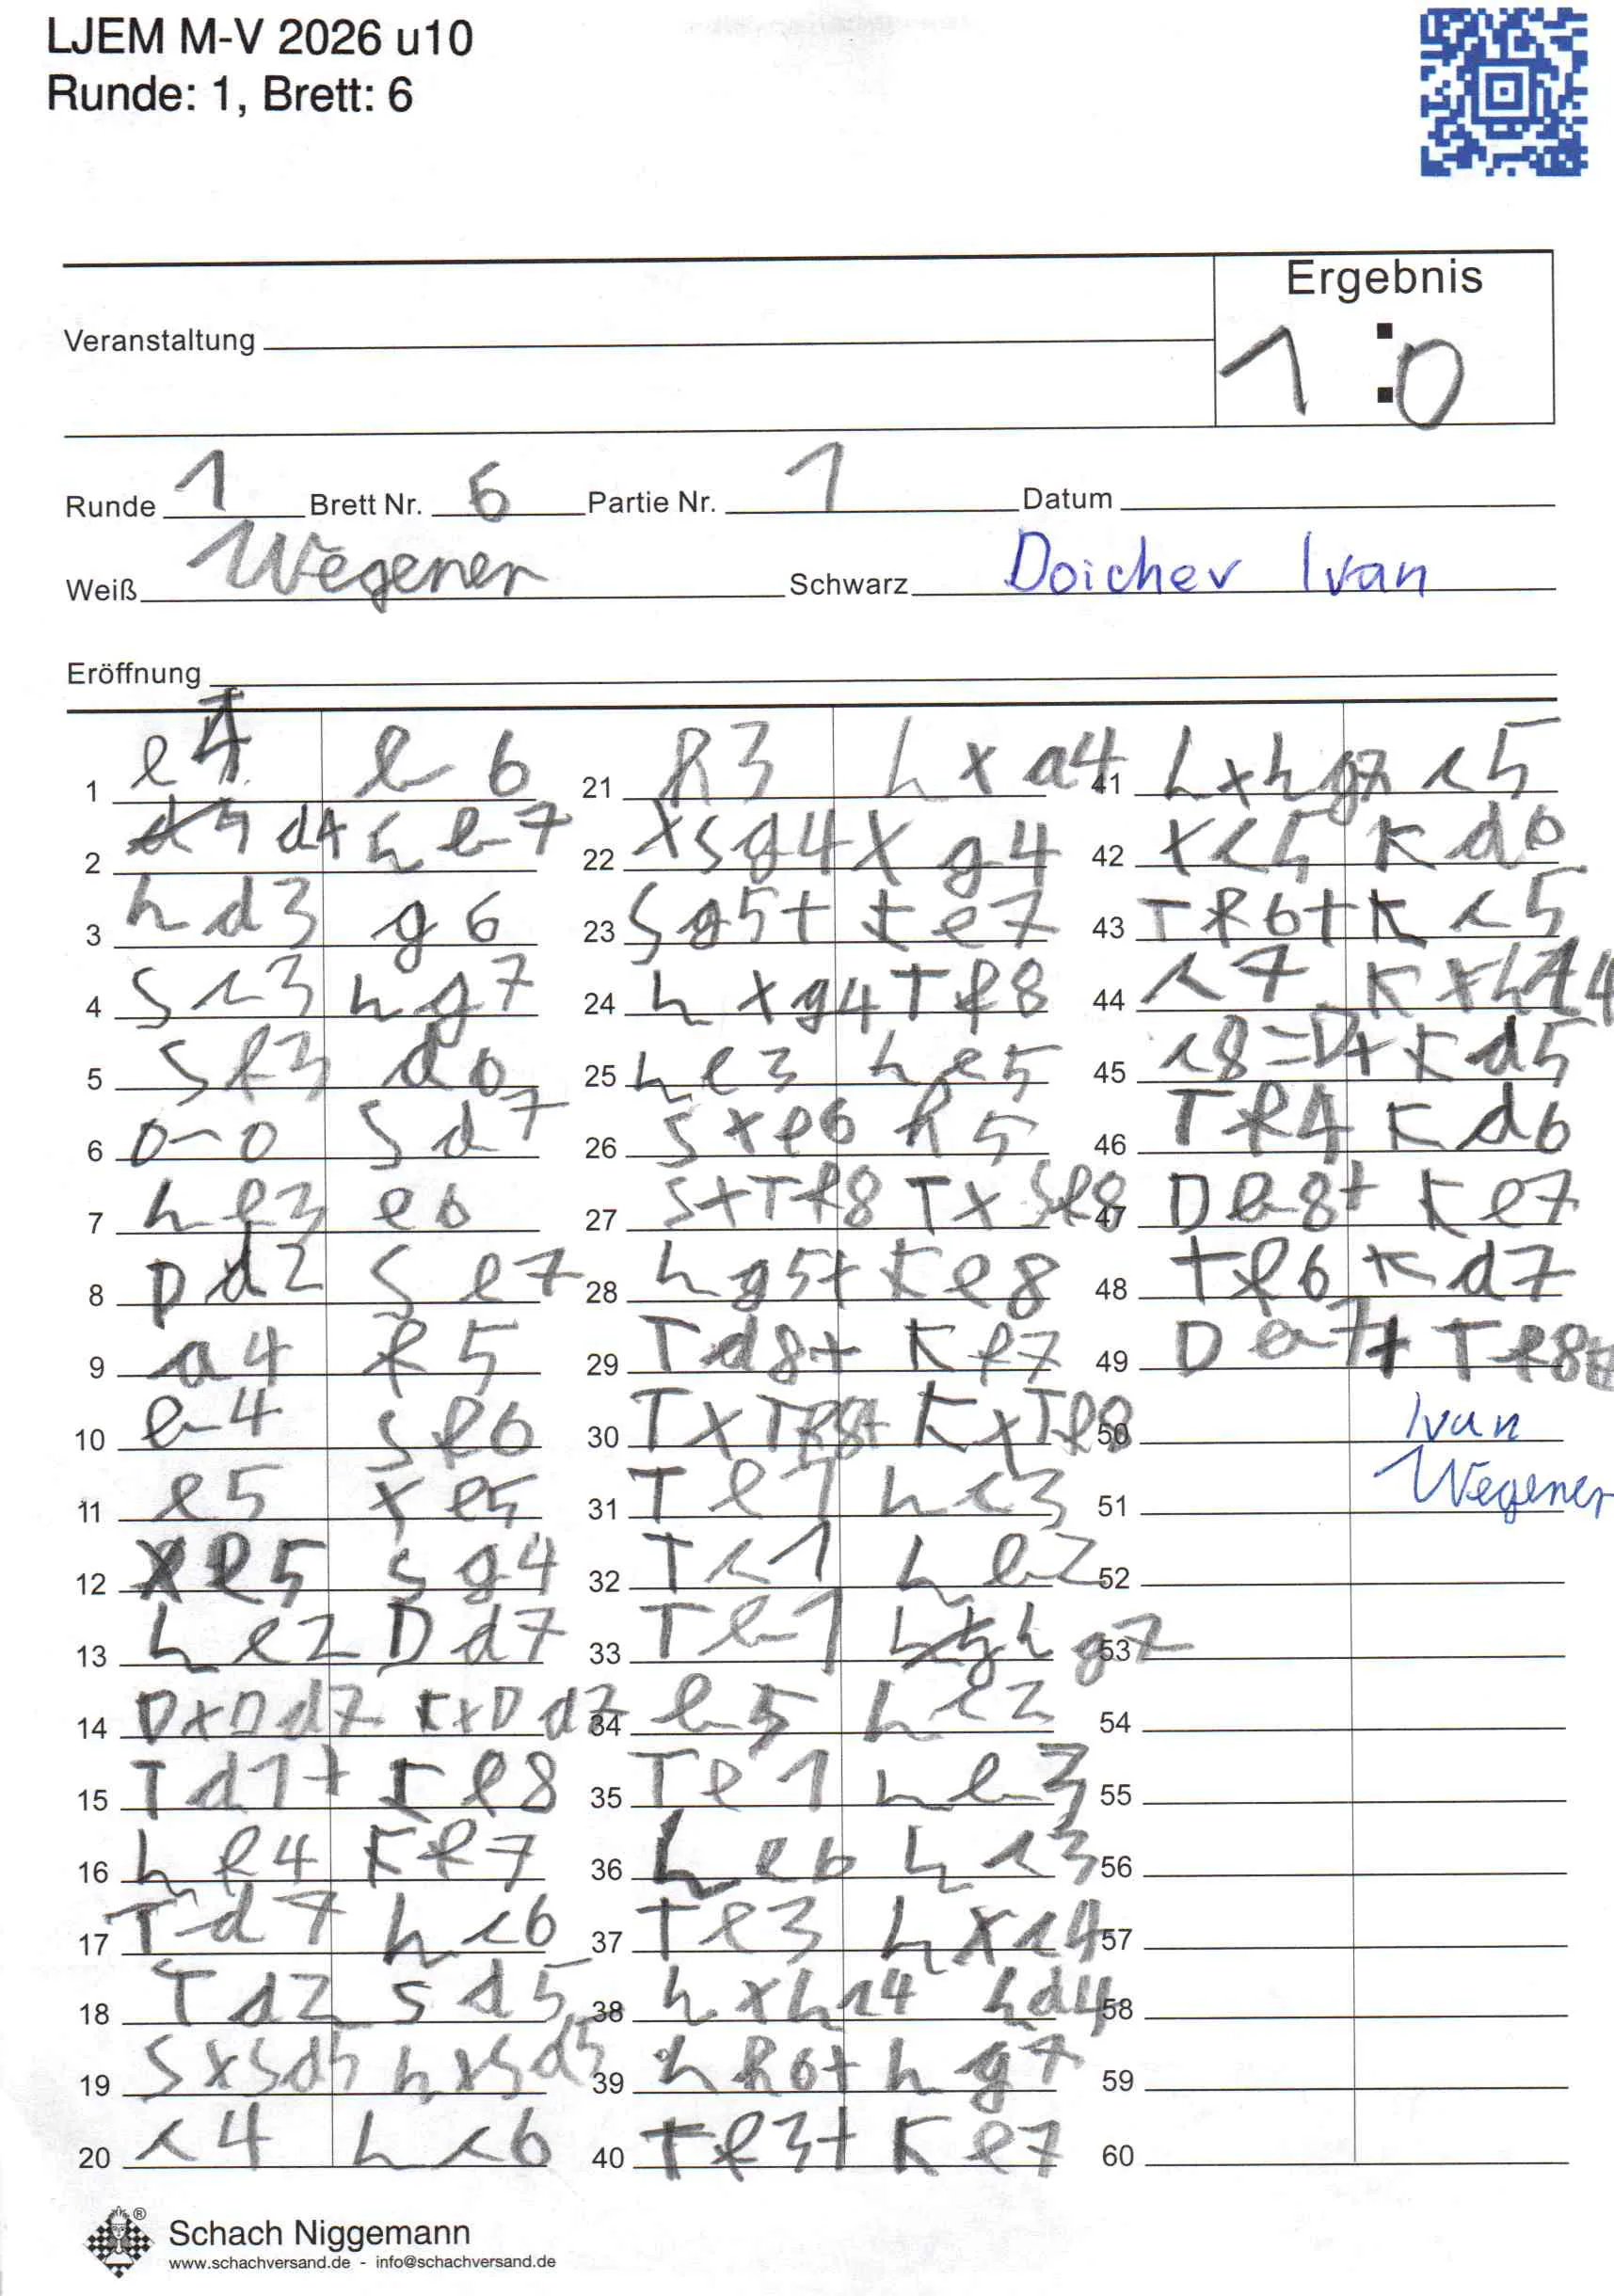 LJEM M-V 2026 u10
Runde: 1, Brett: 6
Ergebnis
1 : 0
Veranstaltung
Runde 1 Brett Nr. 6 Partie Nr. 1 Datum
Weiß Wegener Schwarz Doichev Ivan
Eröffnung
1 e4 b6
2 d4 Lb7
3 Ld3 g6
4 Sc3 Lg7
5 Sf3 d6
6 0-0 Sd7
7 Le3 e6
8 Dd2 Se7
9 a4 f5
10 b4 Sf6
11 e5 xe5
12 xe5 Sg4
13 Le2 Dd7
14 DxDd7 KxDd7
15 Td1+ Ke8
16 Lf4 Kf7
17 Td7 Lc6
18 Td2 Sd5
19 SxSd5 LxSd5
20 c4 Lc6
21 h3 Lxa4
22 xSg4 xg4
23 Sg5+ Ke7
24 Lxg4 Tf8
25 Le3 Le5
26 Sxe6 h5
27 SxTf8 TxSf8
28 Lg5+ Ke8
29 Td8+ Kf7
30 TxTf8+ KxTf8
31 Te1 Lc3
32 Tc1 Lb2
33 Tb1 Lg7
34 b5 Lc2
35 Te1 Lb3
36 Le6 Lc3
37 Te3 Lxc4
38 LxLc4 Ld4
39 Lh6+ Lg7
40 Tf3+ Ke7
41 LxLg7 c5
42 xc5 Kd6
43 Tf6+ Kc5
44 c7 KxLc4
45 c8=D+ Kd5
46 Tf4 Kd6
47 Db8+ Ke7
48 Tf6 Kd7
49 Db7+ Tf8#
50 Ivan
51 Wegener
52
53
54
55
56
57
58
59
60
Schach Niggemann
www.schachversand.de - info@schachversand.de